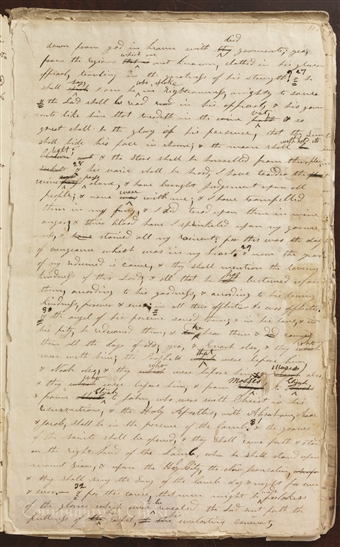 down from god in heaven with died garments; yea,
from the regions which is not known, clothed in his glorious
apparel, traveling in the greatness of his strength? & he
shall say I am he, who spoke in righteousness, mighty to save
& the Lord shall be red in his apparel, & his garm
ents like him that treadeth in the wine vat & so
great shall be the glory of his presence, that the sun
shall hide his face in shame; & the moon shall
light; & the stars shall be hurled from their
& his voice shall be heard, I have trodden the
press alone, & have brought judgement upon all
people; & none were with me; & I have trampled
them in my fury, & I did tread upon them in mine
anger; & their blood have I sprinkled upon my garme
nts, & stained all my raiment; for this was the day
of vengeance which was in my heart. & now the year
of my redeemed is come, & they shall mention the loving
kindness of their Lord; & all that he has bestowed upon
them, according to his goodness, & according to his loving
kindness, forever & ever. in all their afflictions he was afflicted,
& the angel of his presence saved them; & in his love, & in
his pity he redeemed them, & he bear them & carried
them all the days of old; yea, & Enoch also, & they who
were with him; the prophets that were before him,
& Noah also, & they who were before him; & Moses also
& they who were before him, & from Moses to Elijah
& from Elijah to John, who were with Christ in his
resurrection, & the Holy Apostles, with Abraham, Isaac
& Jacob, shall be in the presence of the Lamb, & the graves
of the saints shall be opened, & they shall come forth & stan
on the right hand of the Lamb, when he shall stand upon
mount Zion, & upon the Holy City, the New Jerusalem,
& they shall sing the song of the Lamb day & night for ever
& ever. & for this cause, that men might be partakers
of the glories which were revealed, the Lord sent forth the
fulness of his gospel, his everlasting covenant,